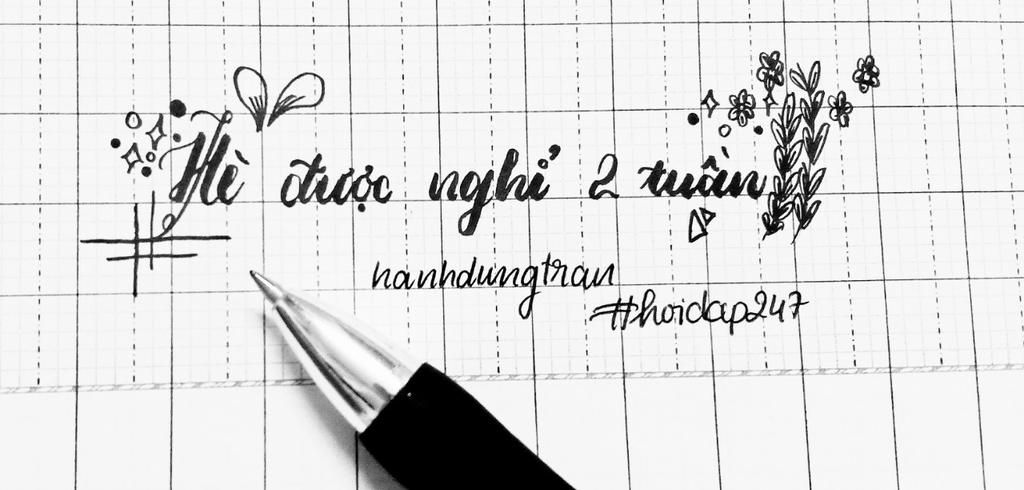 Hè được nghỉ 2 tuần
hanhdungtran
#hoidap247